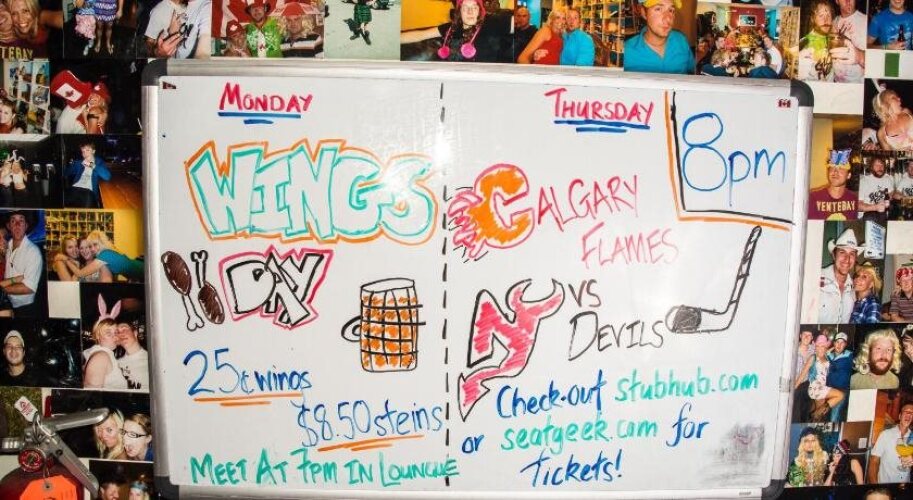 MONDAY
WINGS
DAY
25¢ wings
$8.50 steins
MEET AT 7PM IN LOUNGUE
THURSDAY
8pm
CALGARY
FLAMES
VS
DEVILS
Check-out stubhub.com
or seatgeek.com for
Tickets!
YENTEBAY